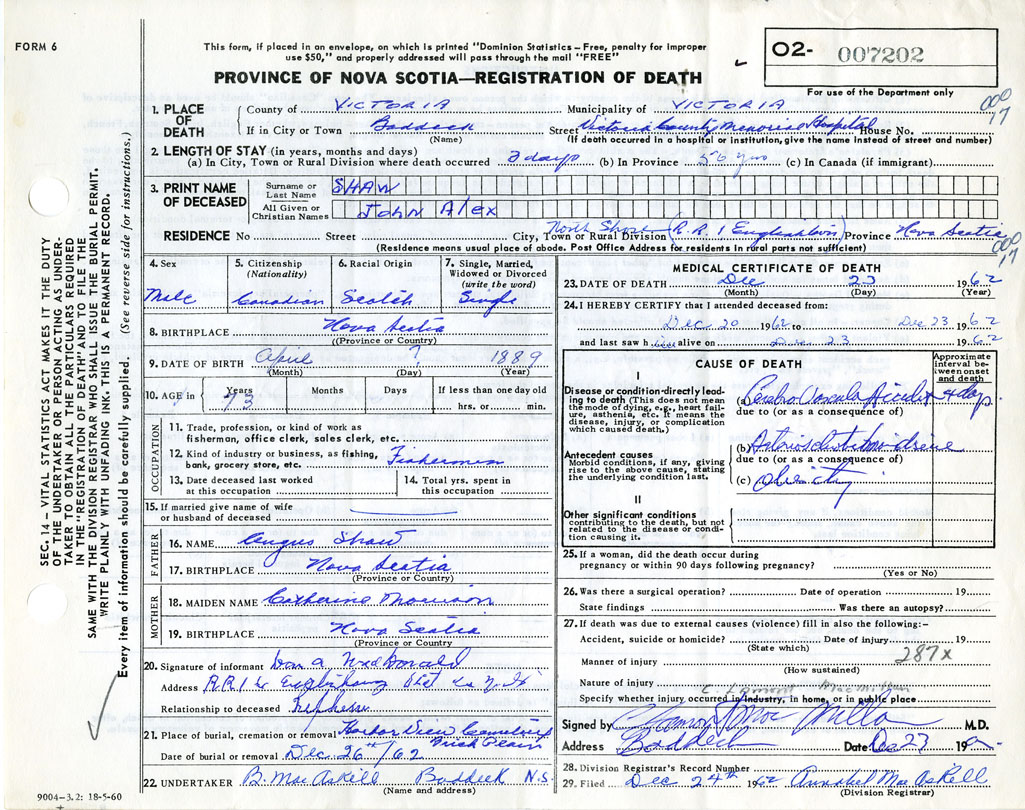 FORM 6
This form, if placed in an envelope, on which is printed "Dominion Statistics – Free, penalty for improper
use $50," and properly addressed will pass through the mail "FREE"
O2- 007202
For use of the Department only
PROVINCE OF NOVA SCOTIA—REGISTRATION OF DEATH
000
17
1. PLACE OF DEATH
County of VICTORIA Municipality of VICTORIA
If in City or Town Baddeck Street Victoria County Memorial Hospital House No.
(Name) (If death occurred in a hospital or institution, give the name instead of street and number)
2. LENGTH OF STAY (in years, months and days)
(a) In City, Town or Rural Division where death occurred 3 days (b) In Province (c) In Canada (if immigrant)
3. PRINT NAME OF DECEASED
Surname or Last Name SHAW
All Given or Christian Names John Alex
RESIDENCE No Street City, Town or Rural Division North Shore (R.R. 1 Englishtown) Province Nova Scotia
(Residence means usual place of abode. Post Office Address for residents in rural parts not sufficient)
000
17
4. Sex Male
5. Citizenship (Nationality) Canadian
6. Racial Origin Scotch
7. Single, Married, Widowed or Divorced (write the word) Single
8. BIRTHPLACE Nova Scotia
(Province or Country)
9. DATE OF BIRTH April ? 1889
(Month) (Day) (Year)
10. AGE in Years 73 Months Days If less than one day old
hrs. or min.
OCCUPATION
11. Trade, profession, or kind of work as
fisherman, office clerk, sales clerk, etc.
12. Kind of industry or business, as fishing,
bank, grocery store, etc. Fisherman
13. Date deceased last worked
at this occupation
14. Total yrs. spent in
this occupation
15. If married give name of wife
or husband of deceased
FATHER
16. NAME Angus Shaw
17. BIRTHPLACE Nova Scotia
(Province or Country)
MOTHER
18. MAIDEN NAME Catherine Morrison
19. BIRTHPLACE Nova Scotia
(Province or Country)
20. Signature of informant Dan A MacDonald
Address R.R.1
Relationship to deceased Nephew
21. Place of burial, cremation or removal Harbor View Cemetery
Date of burial or removal Dec. 26th/62
22. UNDERTAKER B. MacAskill Baddeck N.S.
(Name and address)
9004–3.2: 18-5-60
MEDICAL CERTIFICATE OF DEATH
23. DATE OF DEATH Dec 23 1962
(Month) (Day) (Year)
24. I HEREBY CERTIFY that I attended deceased from:
Dec 20 1962 to Dec 23 1962
and last saw h alive on Dec 23 1962
CAUSE OF DEATH
Approximate interval between onset and death
I
Disease or condition directly leading to death (This does not mean the mode of dying, e.g., heart failure, asthenia, etc. It means the disease, injury, or complication which caused death.)
(a) Cerebro Vascular Accident 4 days
due to (or as a consequence of)
Antecedent causes
Morbid conditions, if any, giving rise to the above cause, stating the underlying condition last.
(b)
due to (or as a consequence of)
(c) Obesity
II
Other significant conditions
contributing to the death, but not related to the disease or condition causing it.
25. If a woman, did the death occur during
pregnancy or within 90 days following pregnancy?
(Yes or No)
26. Was there a surgical operation? Date of operation 19
State findings Was there an autopsy?
27. If death was due to external causes (violence) fill in also the following:–
Accident, suicide or homicide? Date of injury 19
(State which)
287x
Manner of injury
(How sustained)
Nature of injury
C. Lamont MacMillan
Specify whether injury occurred in industry, in home, or in public place
Signed by C Lamont MacMillan M.D.
Address Baddeck Date Dec 23 19
28. Division Registrar's Record Number
29. Filed Dec 24th 1962 Annabel MacAskill
(Division Registrar)
SEC. 14 – VITAL STATISTICS ACT MAKES IT THE DUTY
OF THE UNDERTAKER OR PERSON ACTING AS UNDER-
TAKER TO OBTAIN ALL THE PARTICULARS REQUIRED
IN THE "REGISTRATION OF DEATH" AND TO FILE THE
SAME WITH THE DIVISION REGISTRAR WHO SHALL ISSUE THE BURIAL PERMIT.
WRITE PLAINLY WITH UNFADING INK. THIS IS A PERMANENT RECORD.
Every item of information should be carefully supplied. (See reverse side for instructions.)